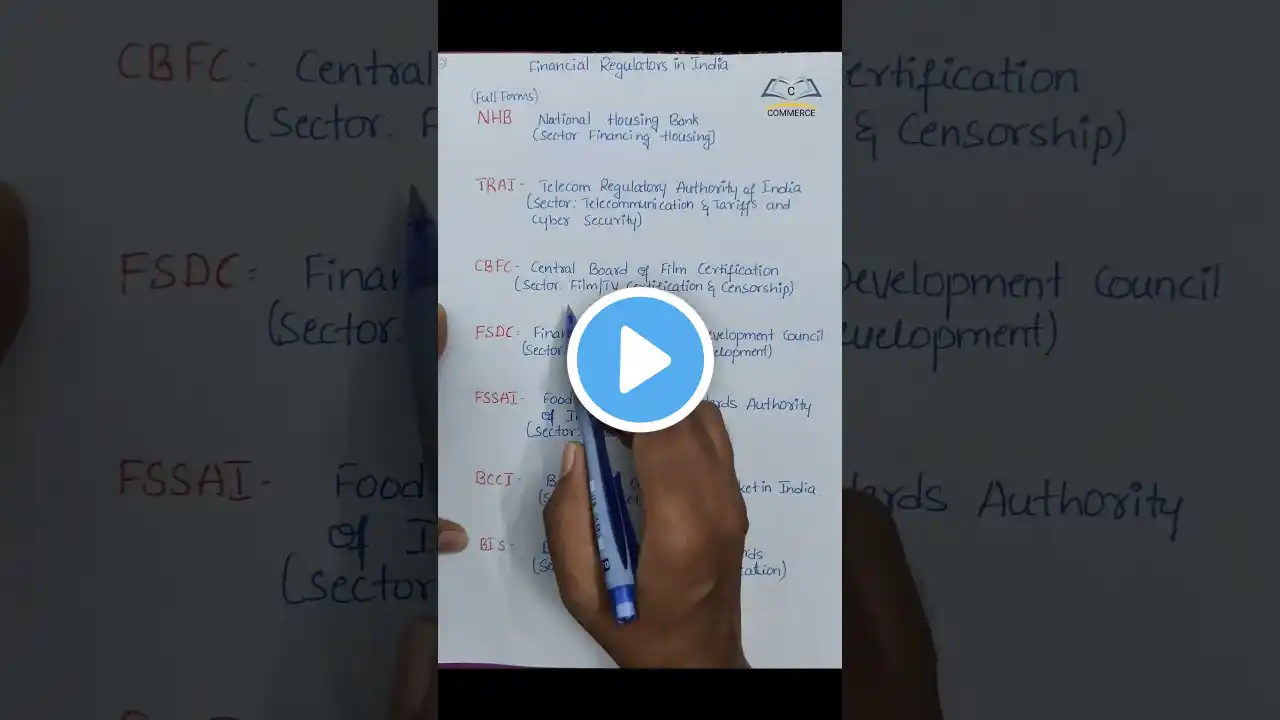 Financial Regulators in India
(Full Forms)
C
COMMERCE
NHB National Housing Bank
(Sector Financing Housing)
TRAI- Telecom Regulatory Authority of India
(Sector: Telecommunication & Tariffs and
Cyber Security)
CBFC- Central Board of Film Certification
(Sector. Film/TV Certification & Censorship)
FSDC: Finan velopment Council
(Sector elopment)
FSSAI- Food rds Authority
of I
(Sector:
BCCI- B ket in India
BIS- rds
ation)
CBFC- Central ertification
(Sector. F & Censorship)
FSDC: Finan Development Council
(Sector: velopment)
FSSAI- Food rds Authority
of I
(Sector